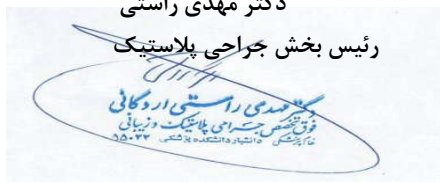 دکتر مهدی راستی
رئیس بخش جراحی پلاستیک
دکتر مهدی راستی اردکانی
فوق تخصص جراحی پلاستیک وزیبائی
دانشیار دانشکده پزشکی ۹۵۰۳۳